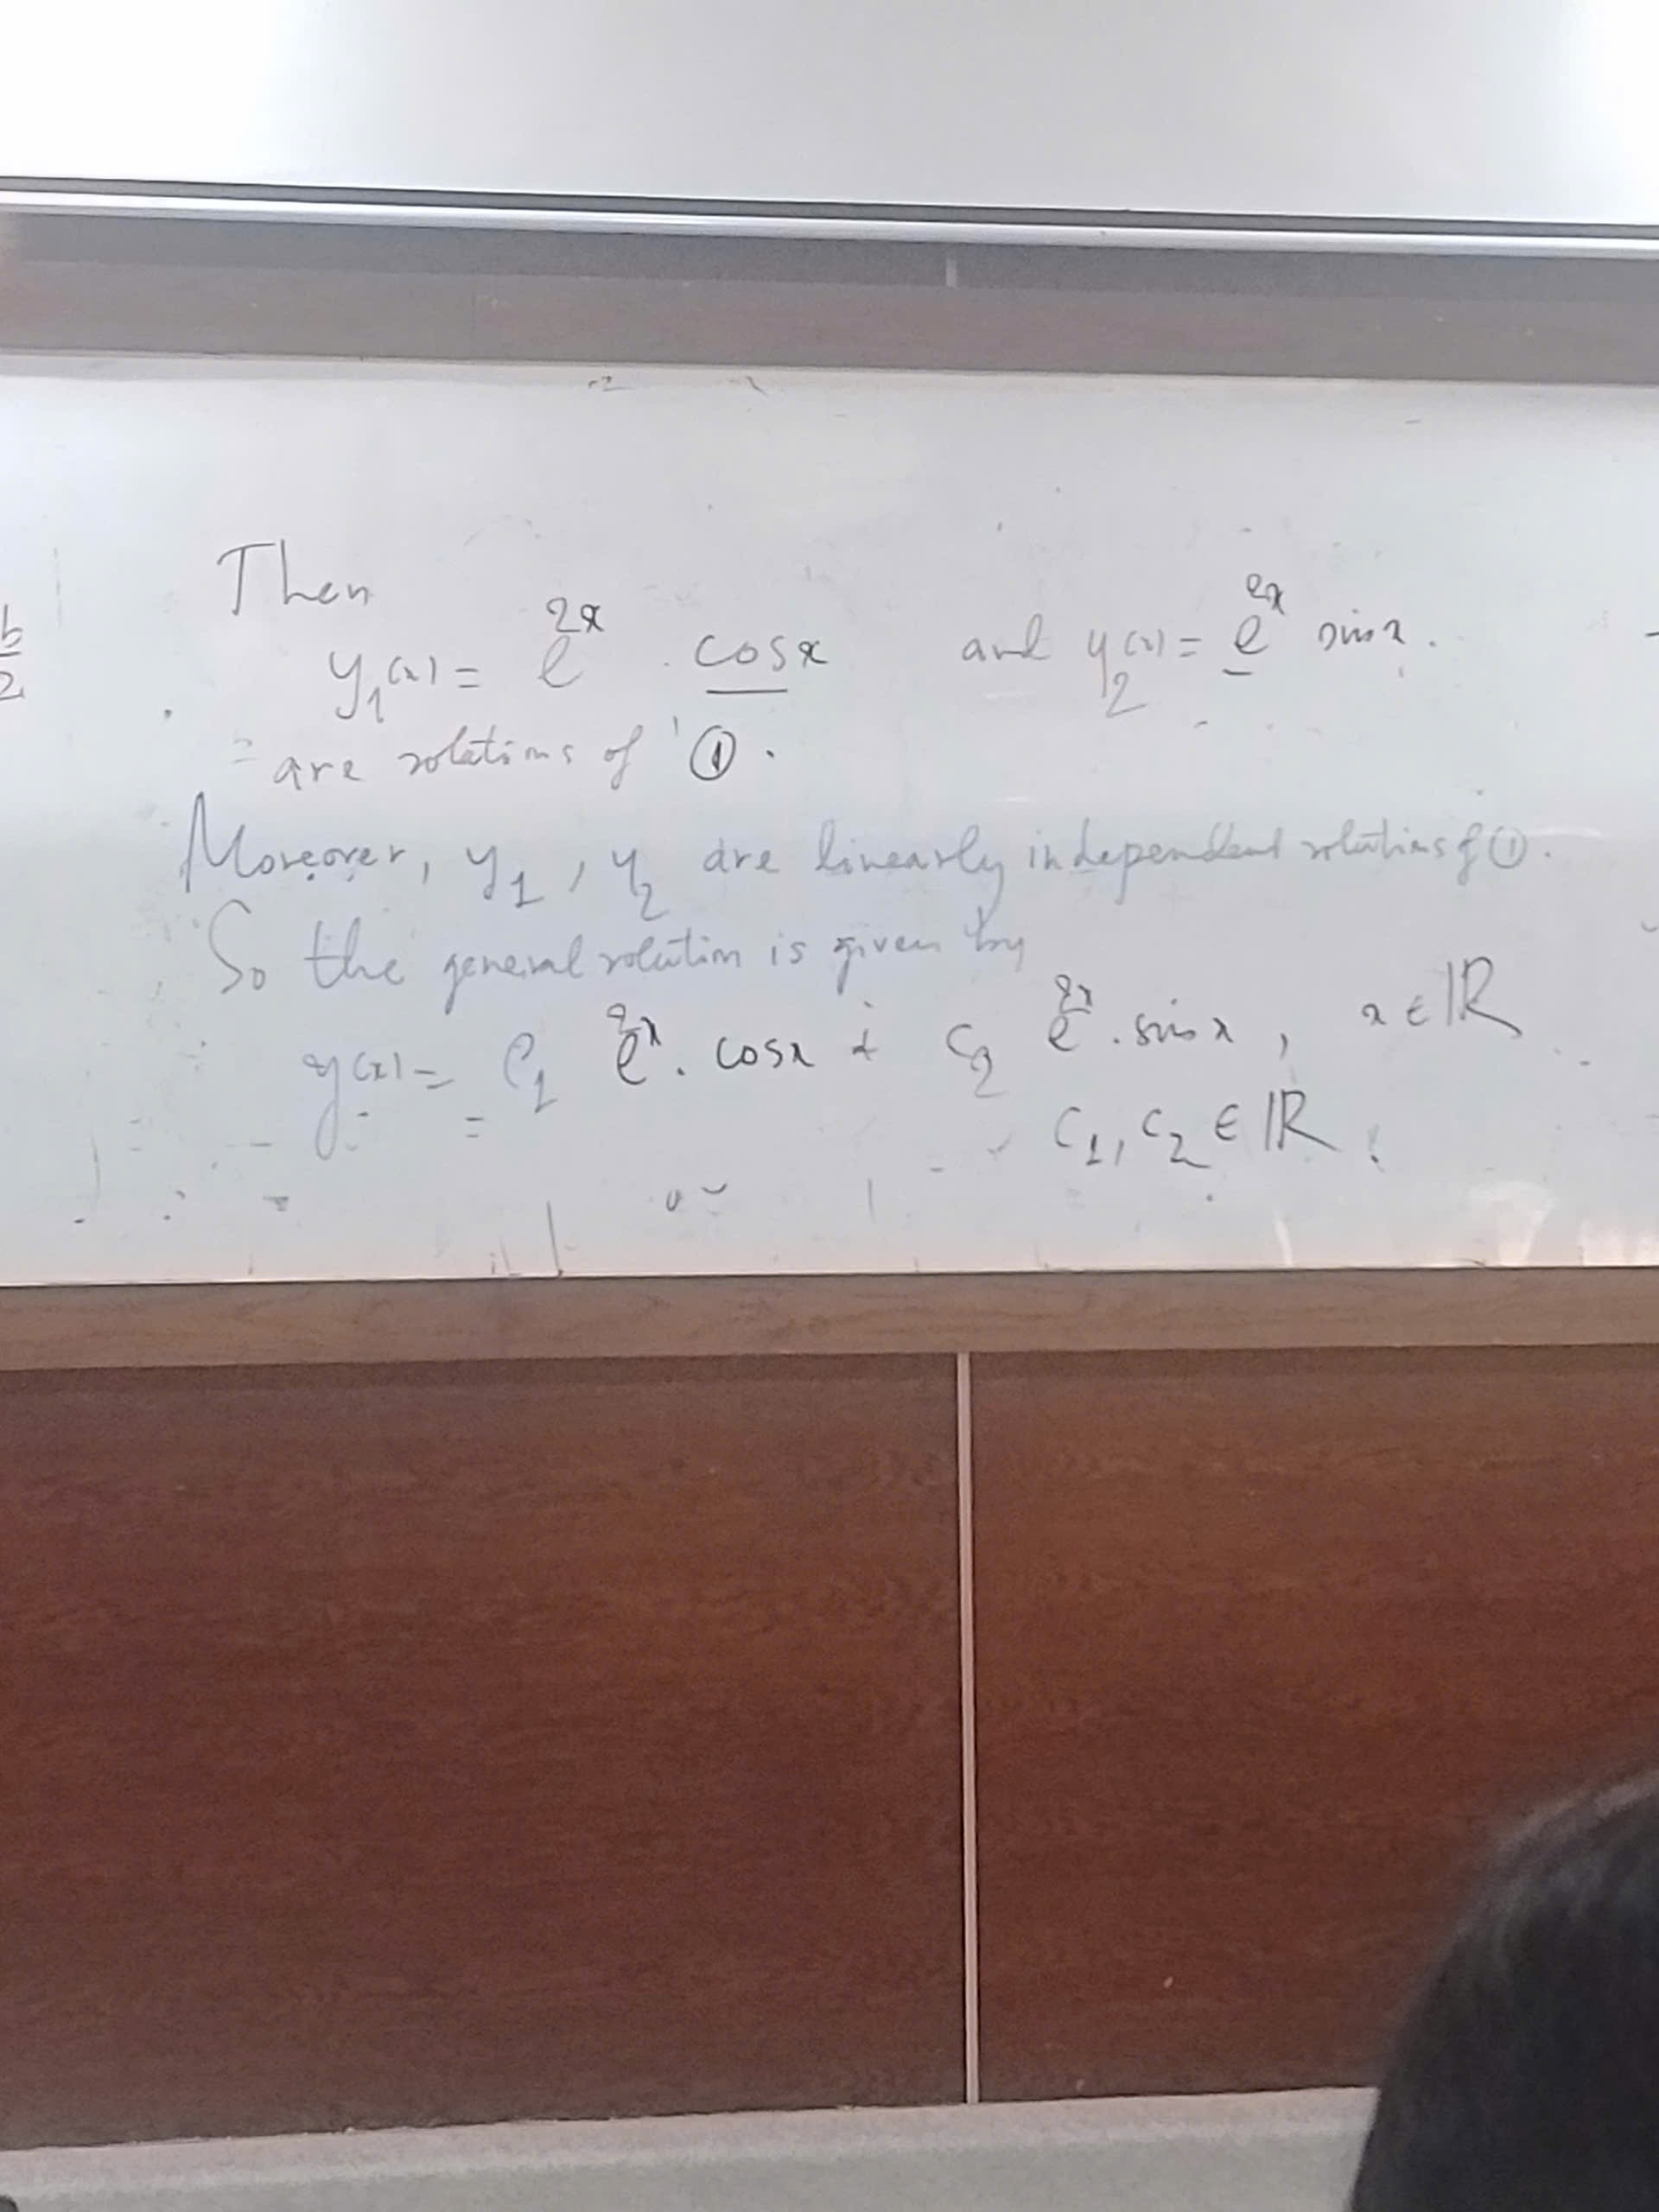 Then
y₁(x) = e^{2x} . cosx and y₂(x) = e^{2x} sinx.
are solutions of ①.
Moreover, y₁, y₂ are linearly independent solutions of ①.
So the general solution is given by
y(x) = C₁ e^{2x}. cosx + C₂ e^{2x}. sinx, x ∈ ℝ
C₁, C₂ ∈ ℝ.
b/2